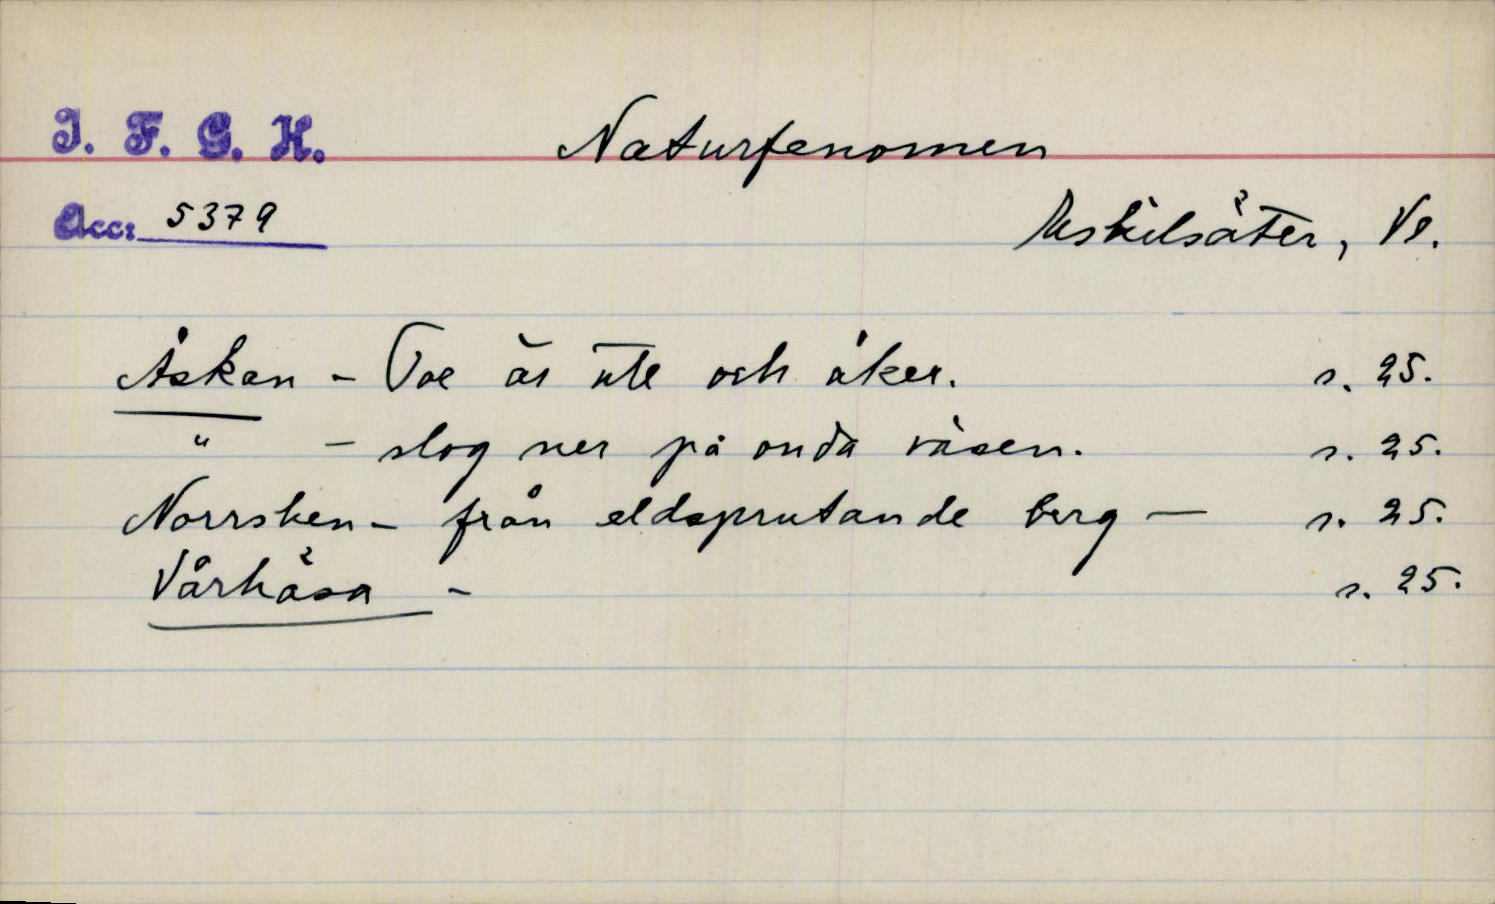 I. F. G. H.
Naturfenomen
Acc: 5379
Eskilsäter, Vl.
Åskan - Toe är ute och åker. s. 25.
" - slog ner på onda väsen. s. 25.
Norrsken - från eldsprutande berg - s. 25.
Vårhåsa - s. 25.